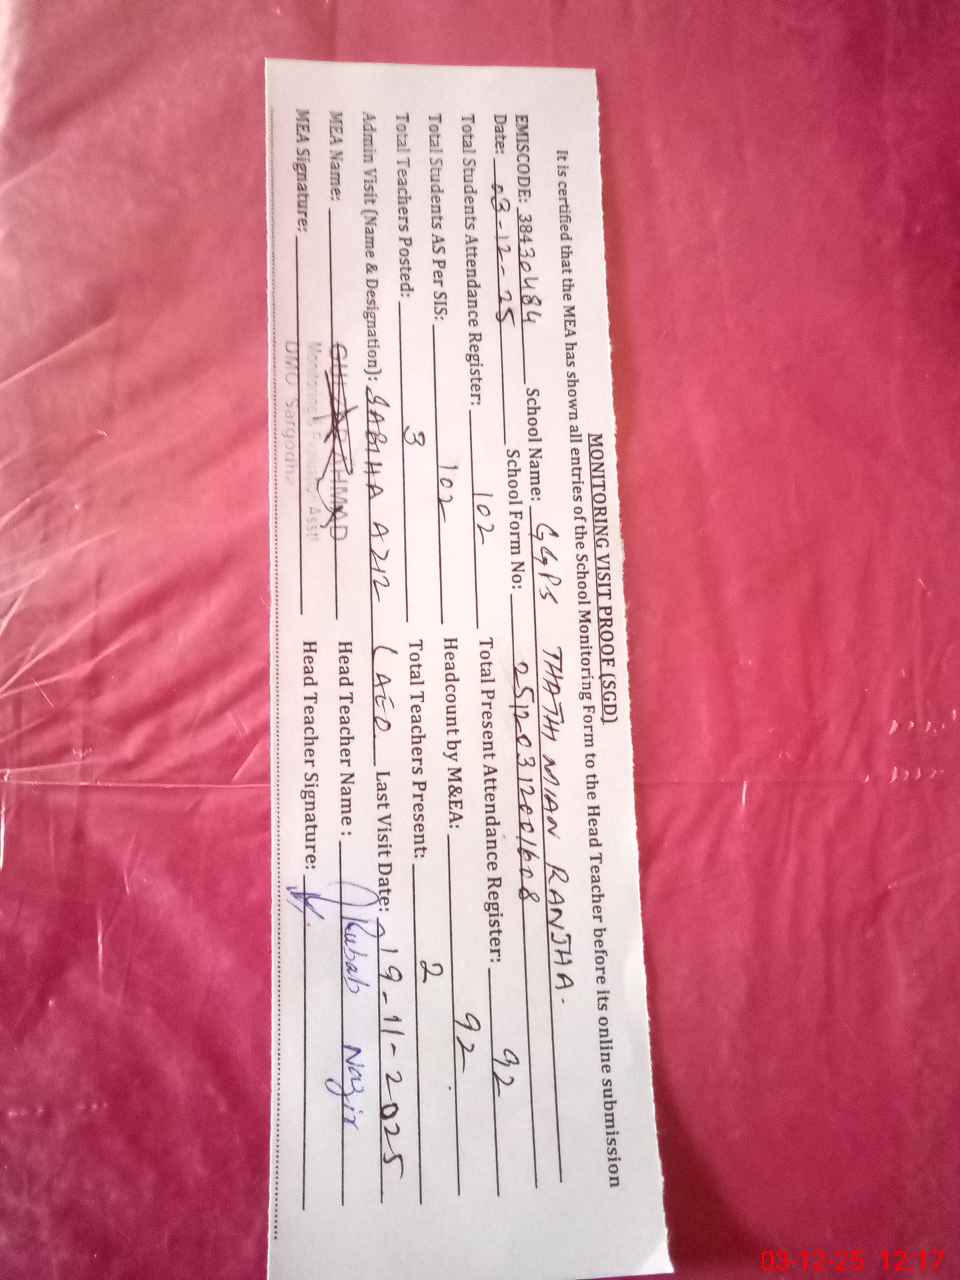 MONITORING VISIT PROOF (SGD)
It is certified that the MEA has shown all entries of the School Monitoring Form to the Head Teacher before its online submission
EMISCODE: 38430484 School Name: GGPS THATHI MIAN RANJHA.
Date: 03-12-25 School Form No: 25120312001608
Total Students Attendance Register: 102 Total Present Attendance Register: 92
Total Students AS Per SIS: 102 Headcount by M&EA: 92
Total Teachers Posted: 3 Total Teachers Present: 2
Admin Visit (Name & Designation): SABIHA AZIZ (AEO Last Visit Date: 19-11-2025
MEA Name: AHMAD Head Teacher Name : Rubab Nazir
Monitoring Asstt
MEA Signature: Head Teacher Signature:
DMO Sargodha
03-12-25 12:17